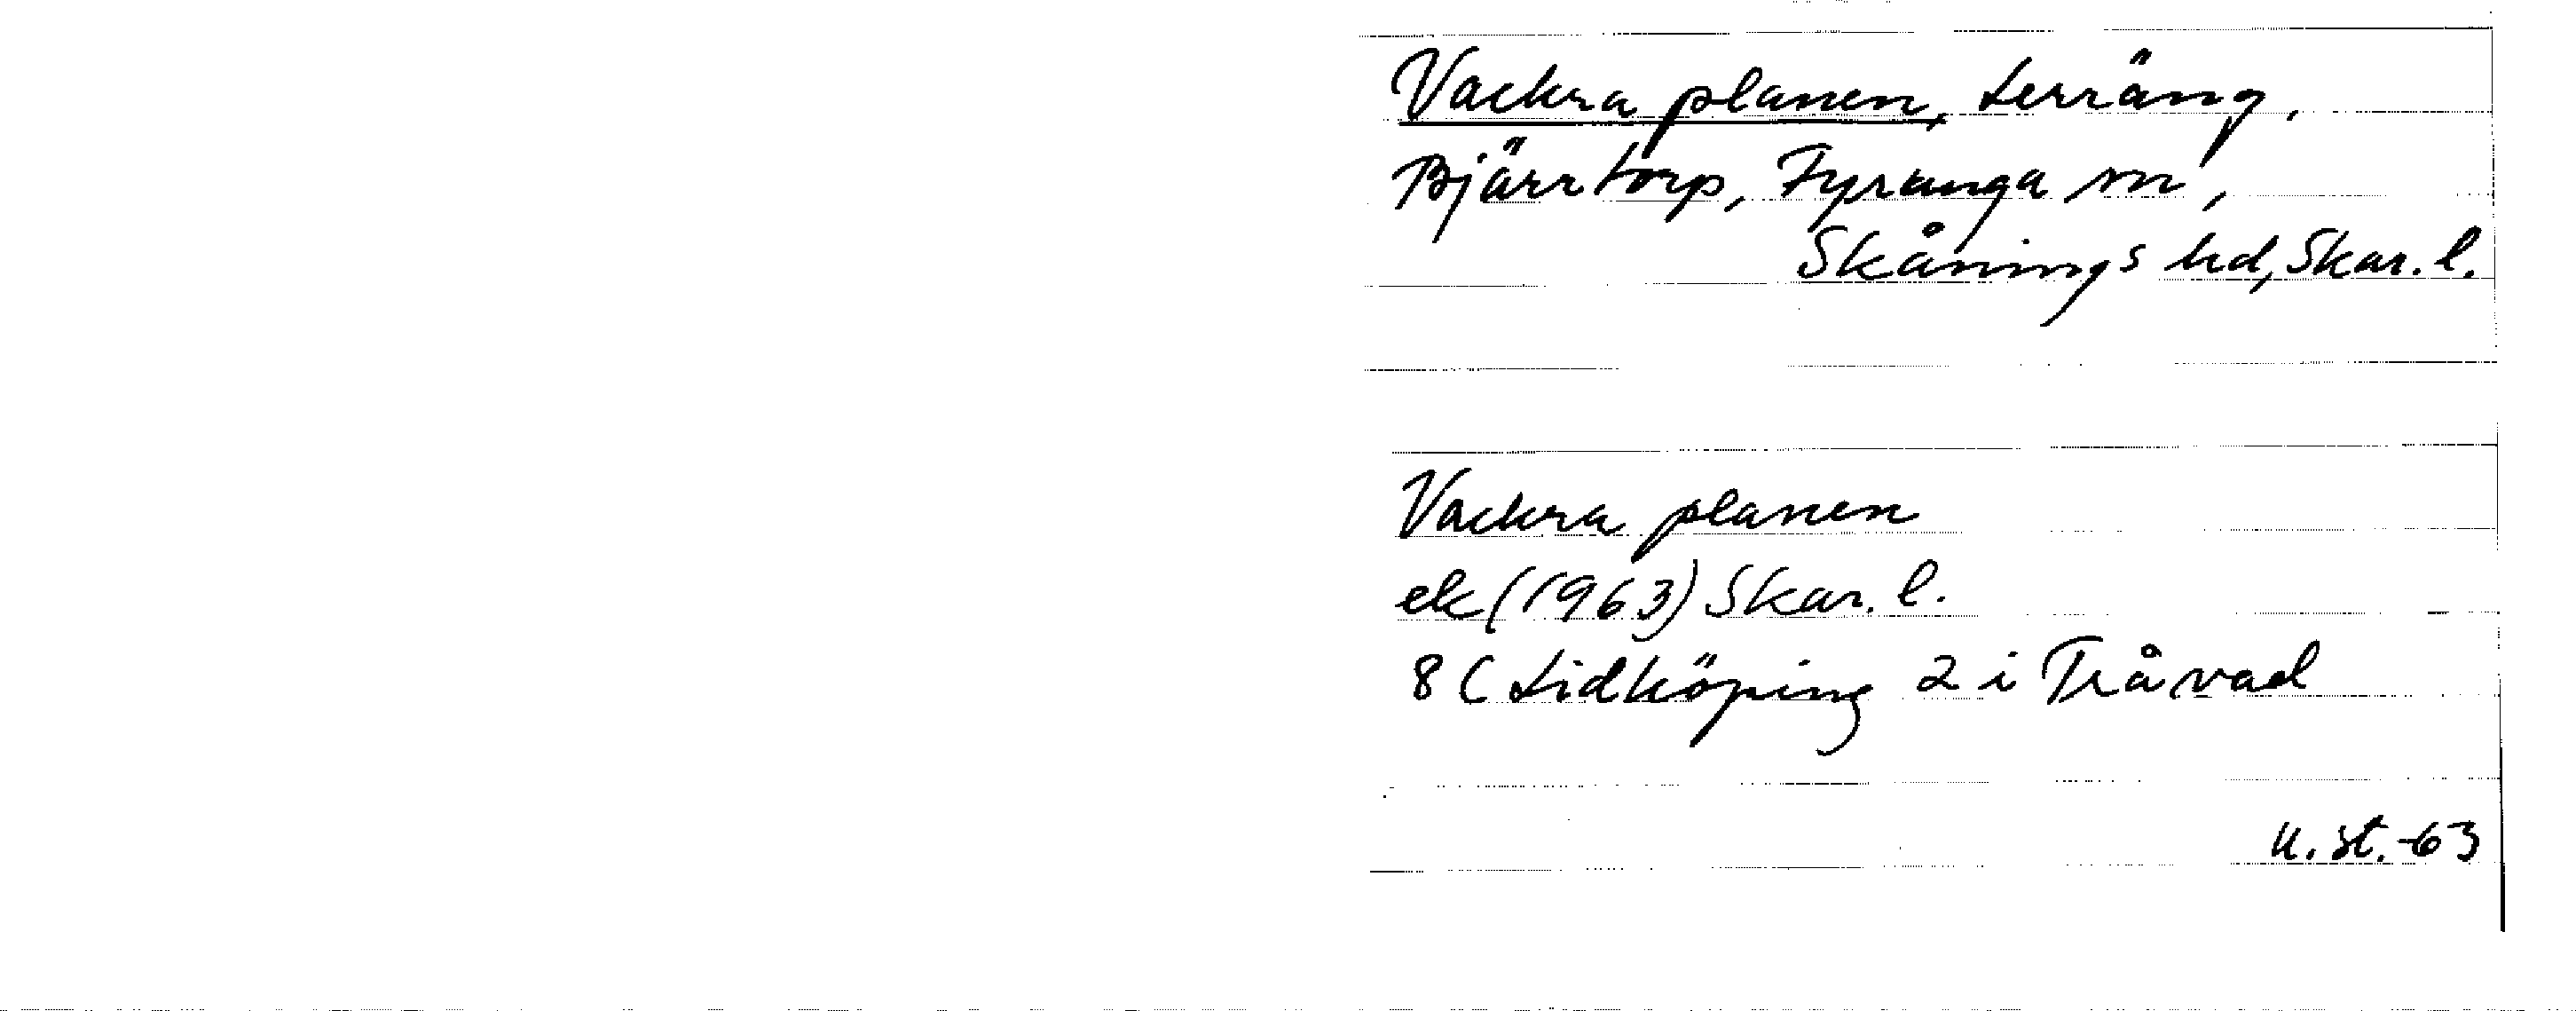 Vackra planen, terräng,
Bjärrtorp, Fyrunga sn,
Skånings hd, Skar. l.
Vackra planen
ek (1963) Skar. l.
8 C Lidköping 2 i Tråvad
u. st. -63